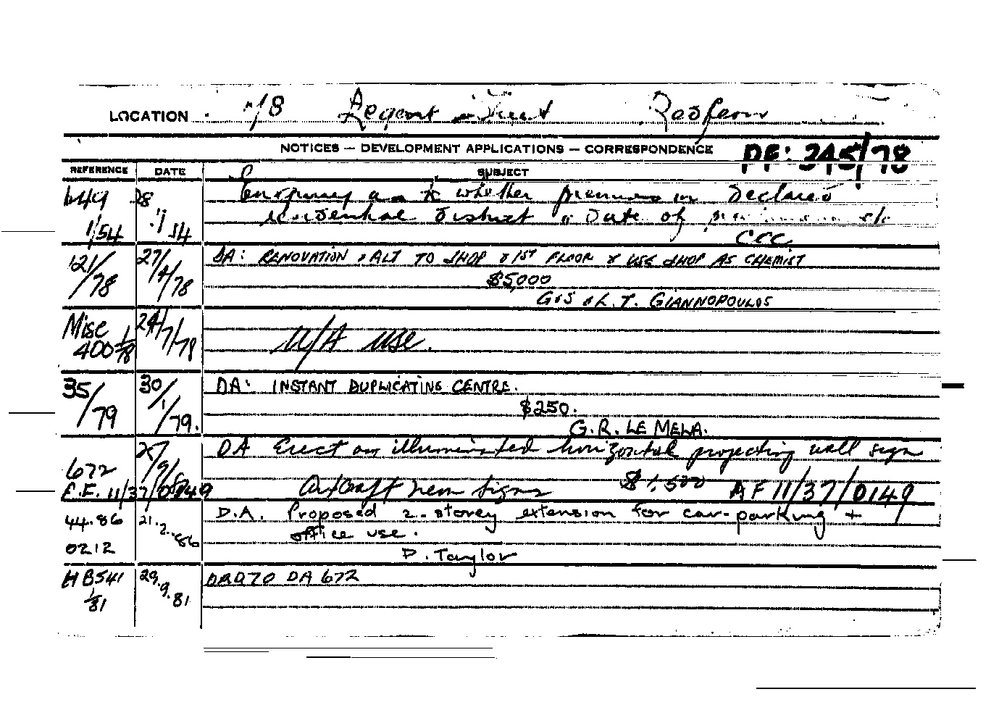 LOCATION 78 Regent Street Redfern
NOTICES — DEVELOPMENT APPLICATIONS — CORRESPONDENCE PF: 345/78
REFERENCE DATE SUBJECT
Enquiry as to whether premises in Declared
1/54 residential District & Date of
CCC.
121/78 27/4/78 DA: RENOVATION & ALT TO SHOP & 1ST FLOOR & USE SHOP AS CHEMIST
$5,000
G & L.T. GIANNOPOULOS
Misc 400 1/78 24/7/78 U/A use.
35/79 30/1/79. DA: INSTANT DUPLICATING CENTRE.
$250.
G.R. LE MELA.
672 DA Erect an illuminated horizontal projecting wall sign
Artcraft Neon Signs $1,500 AF 11/37/0149
44.86 0212 21.2.86 D.A. Proposed 2-storey extension for car-parking +
office use.
P. Taylor
HB541/81 29.9.81 DA 672